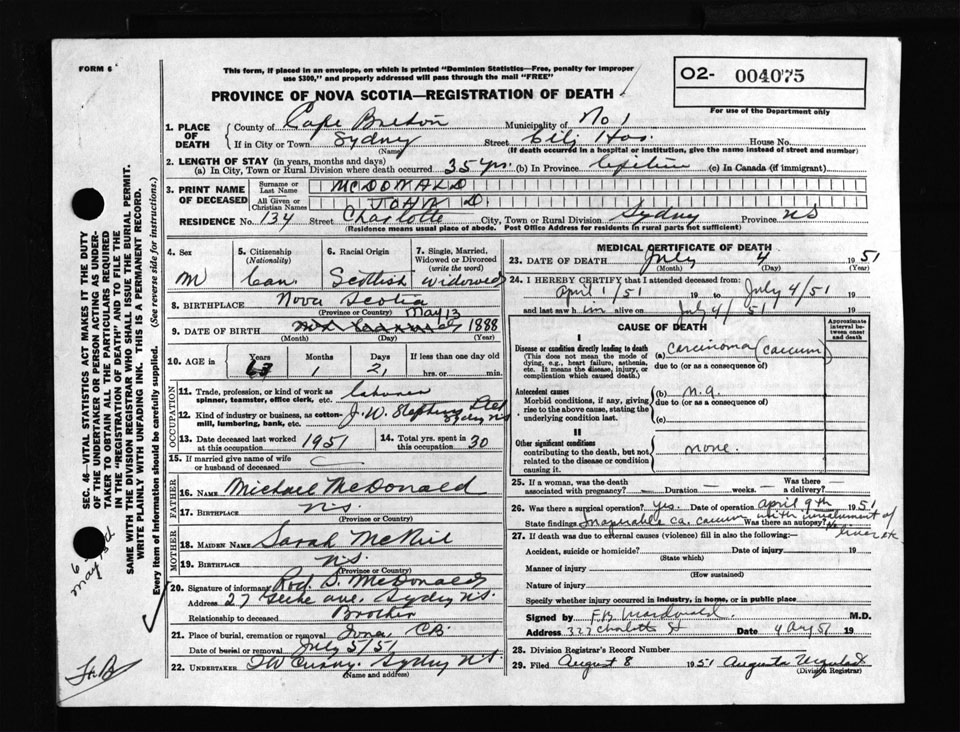 FORM 6
This form, if placed in an envelope, on which is printed "Dominion Statistics—Free, penalty for improper
use $300," and properly addressed will pass through the mail "FREE"
O2- 004075
For the use of the Department only
PROVINCE OF NOVA SCOTIA—REGISTRATION OF DEATH
1. PLACE OF DEATH
County of Cape Breton Municipality of No 1
If in City or Town Sydney Street City Hos. House No.
(Name) (If death occurred in a hospital or institution, give the name instead of street and number)
2. LENGTH OF STAY (in years, months and days)
(a) In City, Town or Rural Division where death occurred 35 yrs. (b) In Province lifetime (c) In Canada (if immigrant)
3. PRINT NAME OF DECEASED
Surname or Last Name MCDONALD
All Given or Christian Names JOHN D.
RESIDENCE No. 134 Street Charlotte City, Town or Rural Division Sydney Province NS
(Residence means usual place of abode. Post Office Address for residents in rural parts not sufficient)
4. Sex
M
5. Citizenship (Nationality)
Can.
6. Racial Origin
Scottish
7. Single, Married, Widowed or Divorced (write the word)
widowed
8. BIRTHPLACE Nova Scotia
(Province or Country)
9. DATE OF BIRTH May 13 1888
(Month) (Day) (Year)
10. AGE in Years 63 Months 1 Days 21 If less than one day old hrs. or min.
OCCUPATION
11. Trade, profession, or kind of work as spinner, teamster, office clerk, etc. labourer
12. Kind of industry or business, as cotton-mill, lumbering, bank, etc. J. W. Stephens Ltd Sydney NS
13. Date deceased last worked at this occupation 1951
14. Total yrs. spent in this occupation 30
15. If married give name of wife or husband of deceased
FATHER
16. NAME Michael McDonald
17. BIRTHPLACE N.S.
(Province or Country)
MOTHER
18. MAIDEN NAME Sarah McNeil
19. BIRTHPLACE N.S.
(Province or Country)
20. Signature of informant Rod. D. McDonald
Address 27 ave. Sydney N.S.
Relationship to deceased Brother
21. Place of burial, cremation or removal Iona, C.B.
Date of burial or removal July 5/51
22. UNDERTAKER T W Curry. Sydney N.S.
(Name and address)
MEDICAL CERTIFICATE OF DEATH
23. DATE OF DEATH July 4 1951
(Month) (Day) (Year)
24. I HEREBY CERTIFY that I attended deceased from:
April 1/51 19 to July 4/51 19
and last saw him alive on July 4/51 19
CAUSE OF DEATH
Approximate interval between onset and death
I
Disease or condition directly leading to death (a) carcinoma (caecum)
(This does not mean the mode of dying, e.g., heart failure, asthenia, etc. It means the disease, injury, or complication which caused death.)
due to (or as a consequence of)
Antecedent causes (b) n.a.
Morbid conditions, if any, giving rise to the above cause, stating the underlying condition last.
due to (or as a consequence of)
(c)
II
Other significant conditions contributing to the death, but not related to the disease or condition causing it. none.
25. If a woman, was the death associated with pregnancy? — Duration — weeks.— Was there a delivery? —
26. Was there a surgical operation? yes. Date of operation april 9th 1951
State findings Inoperable ca. caecum with involvement of liver etc Was there an autopsy? No
27. If death was due to external causes (violence) fill in also the following:—
Accident, suicide or homicide? Date of injury 19
(State which)
Manner of injury
(How sustained)
Nature of injury
Specify whether injury occurred in industry, in home, or in public place
Signed by F.B. Macdonald. M.D.
Address 327 Charlotte St Date 4 Aug 51 19
28. Division Registrar's Record Number
29. Filed August 8 1951 Augusta
(Division Registrar)
SEC. 46—VITAL STATISTICS ACT MAKES IT THE DUTY
OF THE UNDERTAKER OR PERSON ACTING AS UNDER-
TAKER TO OBTAIN ALL THE PARTICULARS REQUIRED
IN THE "REGISTRATION OF DEATH" AND TO FILE THE
SAME WITH THE DIVISION REGISTRAR WHO SHALL ISSUE THE BURIAL PERMIT.
WRITE PLAINLY WITH UNFADING INK. THIS IS A PERMANENT RECORD.
Every item of Information should be carefully supplied. (See reverse side for instructions.)